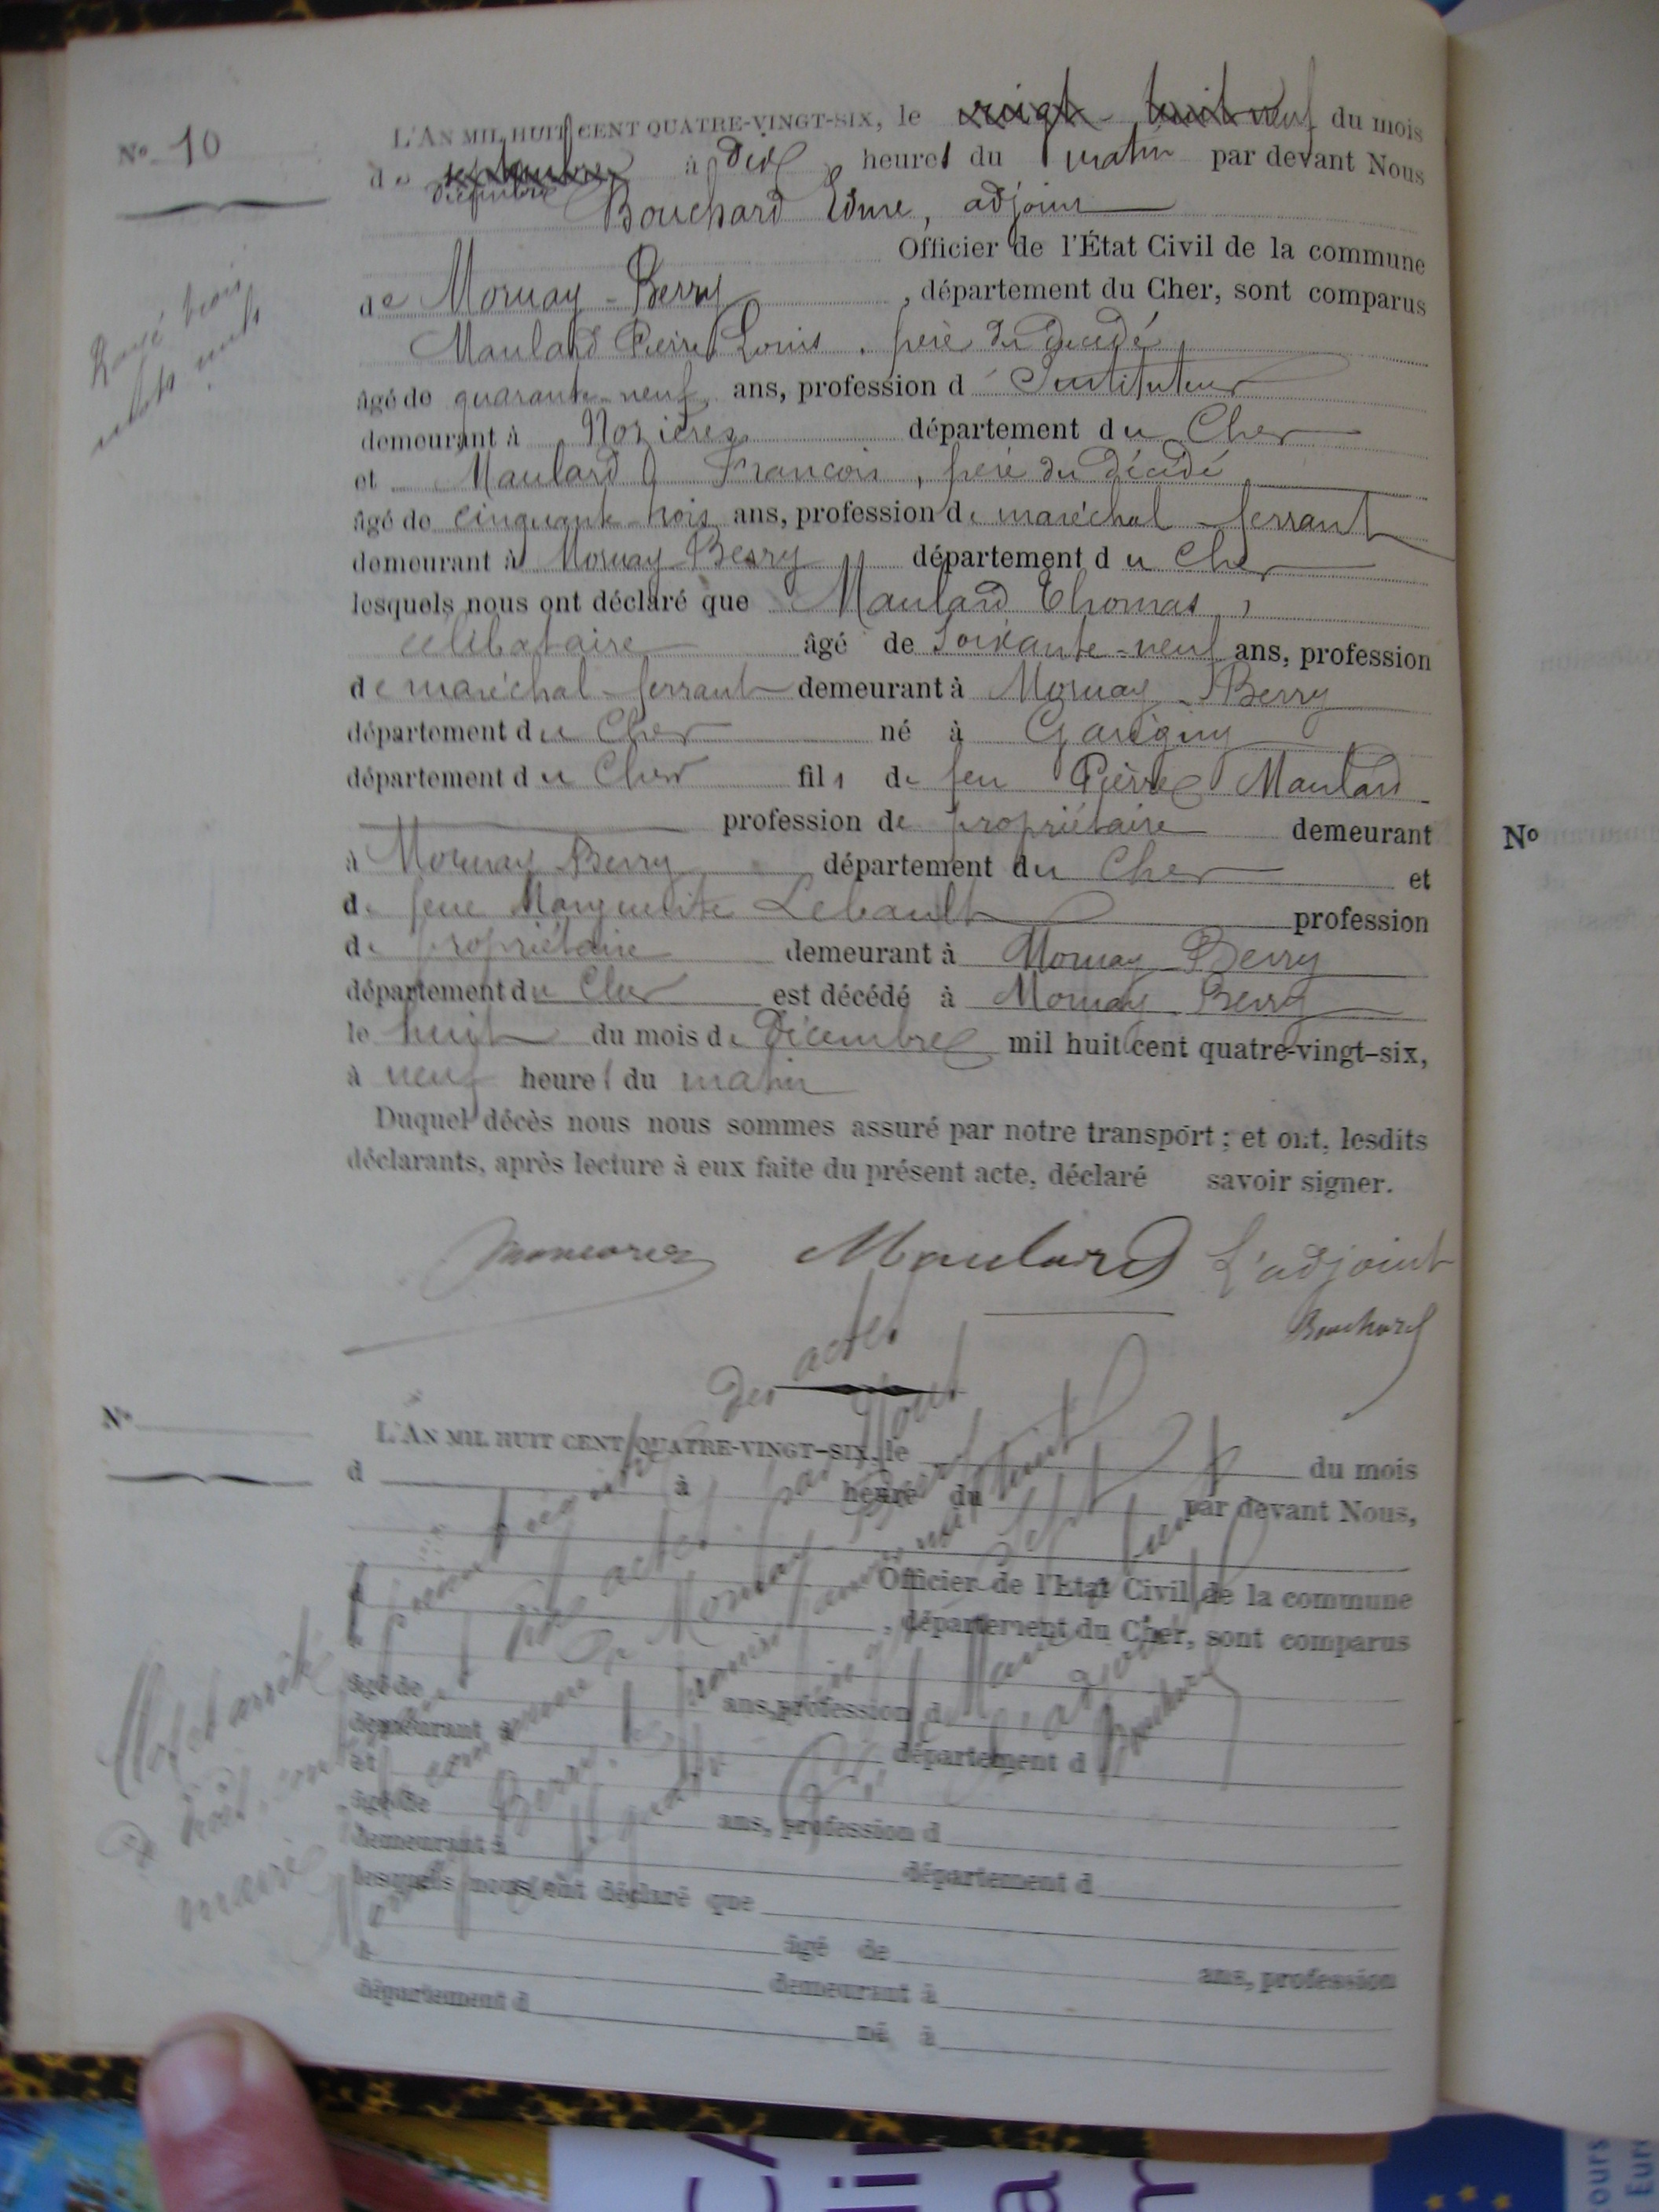 No 10
L'AN MIL HUIT CENT QUATRE-VINGT-SIX, le vingt-huit neuf du mois
de septembre à dix heures du matin par devant Nous
Décembre
Bouchard Edme, adjoint
Officier de l'État Civil de la commune
de Mornay-Berry, département du Cher, sont comparus
Rayé trois
mots nuls
Maulard Pierre Louis, frère du décédé
âgé de quarante-neuf ans, profession d'Instituteur
demeurant à Nozières département du Cher
et Maulard François, frère du décédé
âgé de cinquante-trois ans, profession de maréchal-ferrant
demeurant à Mornay-Berry département du Cher
lesquels nous ont déclaré que Maulard Thomas,
célibataire âgé de soixante-neuf ans, profession
de maréchal-ferrant demeurant à Mornay-Berry
département du Cher né à Garigny
département du Cher fils de feu Pierre Maulard
profession de propriétaire demeurant
à Mornay-Berry département du Cher et
de feue Marguerite Lebault profession
de propriétaire demeurant à Mornay-Berry
département du Cher est décédé à Mornay-Berry
le huit du mois de Décembre mil huit cent quatre-vingt-six,
à neuf heures du matin
Duquel décès nous nous sommes assuré par notre transport; et ont, lesdits
déclarants, après lecture à eux faite du présent acte, déclaré savoir signer.
Maulard L'adjoint
Bouchard
No
L'AN MIL HUIT CENT QUATRE-VINGT-SIX, le du mois
d à heure du par devant Nous,
Officier de l'État Civil de la commune
d , département du Cher, sont comparus
âgé de ans, profession d
demeurant à département d
et
âgé de ans, profession d
demeurant à département d
lesquels nous ont déclaré que
âgé de ans, profession
d demeurant à
département d né à
Clos et arrêté
le présent registre des actes
de décès, contenant dix actes par nous
maire de la commune de Mornay-
Berry
L'adjoint
Bouchard
No